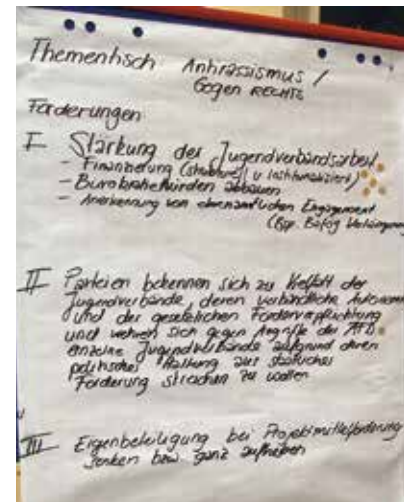 Thementisch Antirassismus /
Gegen RECHTS
Forderungen
I Stärkung der Jugendverbandsarbeit
- Finanzierung (strukturell u
- Bürokratiehürden abbauen
- Anerkennung von ehrenamtlichen Engagement
(Bsp. Bafög Verlängerung
II Parteien bekennen sich zu Vielfalt der
Jugendverbände, deren verbandliche Autonomie
und der gesetzlichen Förderverpflichtung
und wehren sich gegen Angriffe der AFD
einzelne Jugendverbände aufgrund deren
politischer Haltung aus staatlicher
Förderung streichen zu wollen
III Eigenbeteiligung bei Projektmittelförderung
senken bzw. ganz aufheben